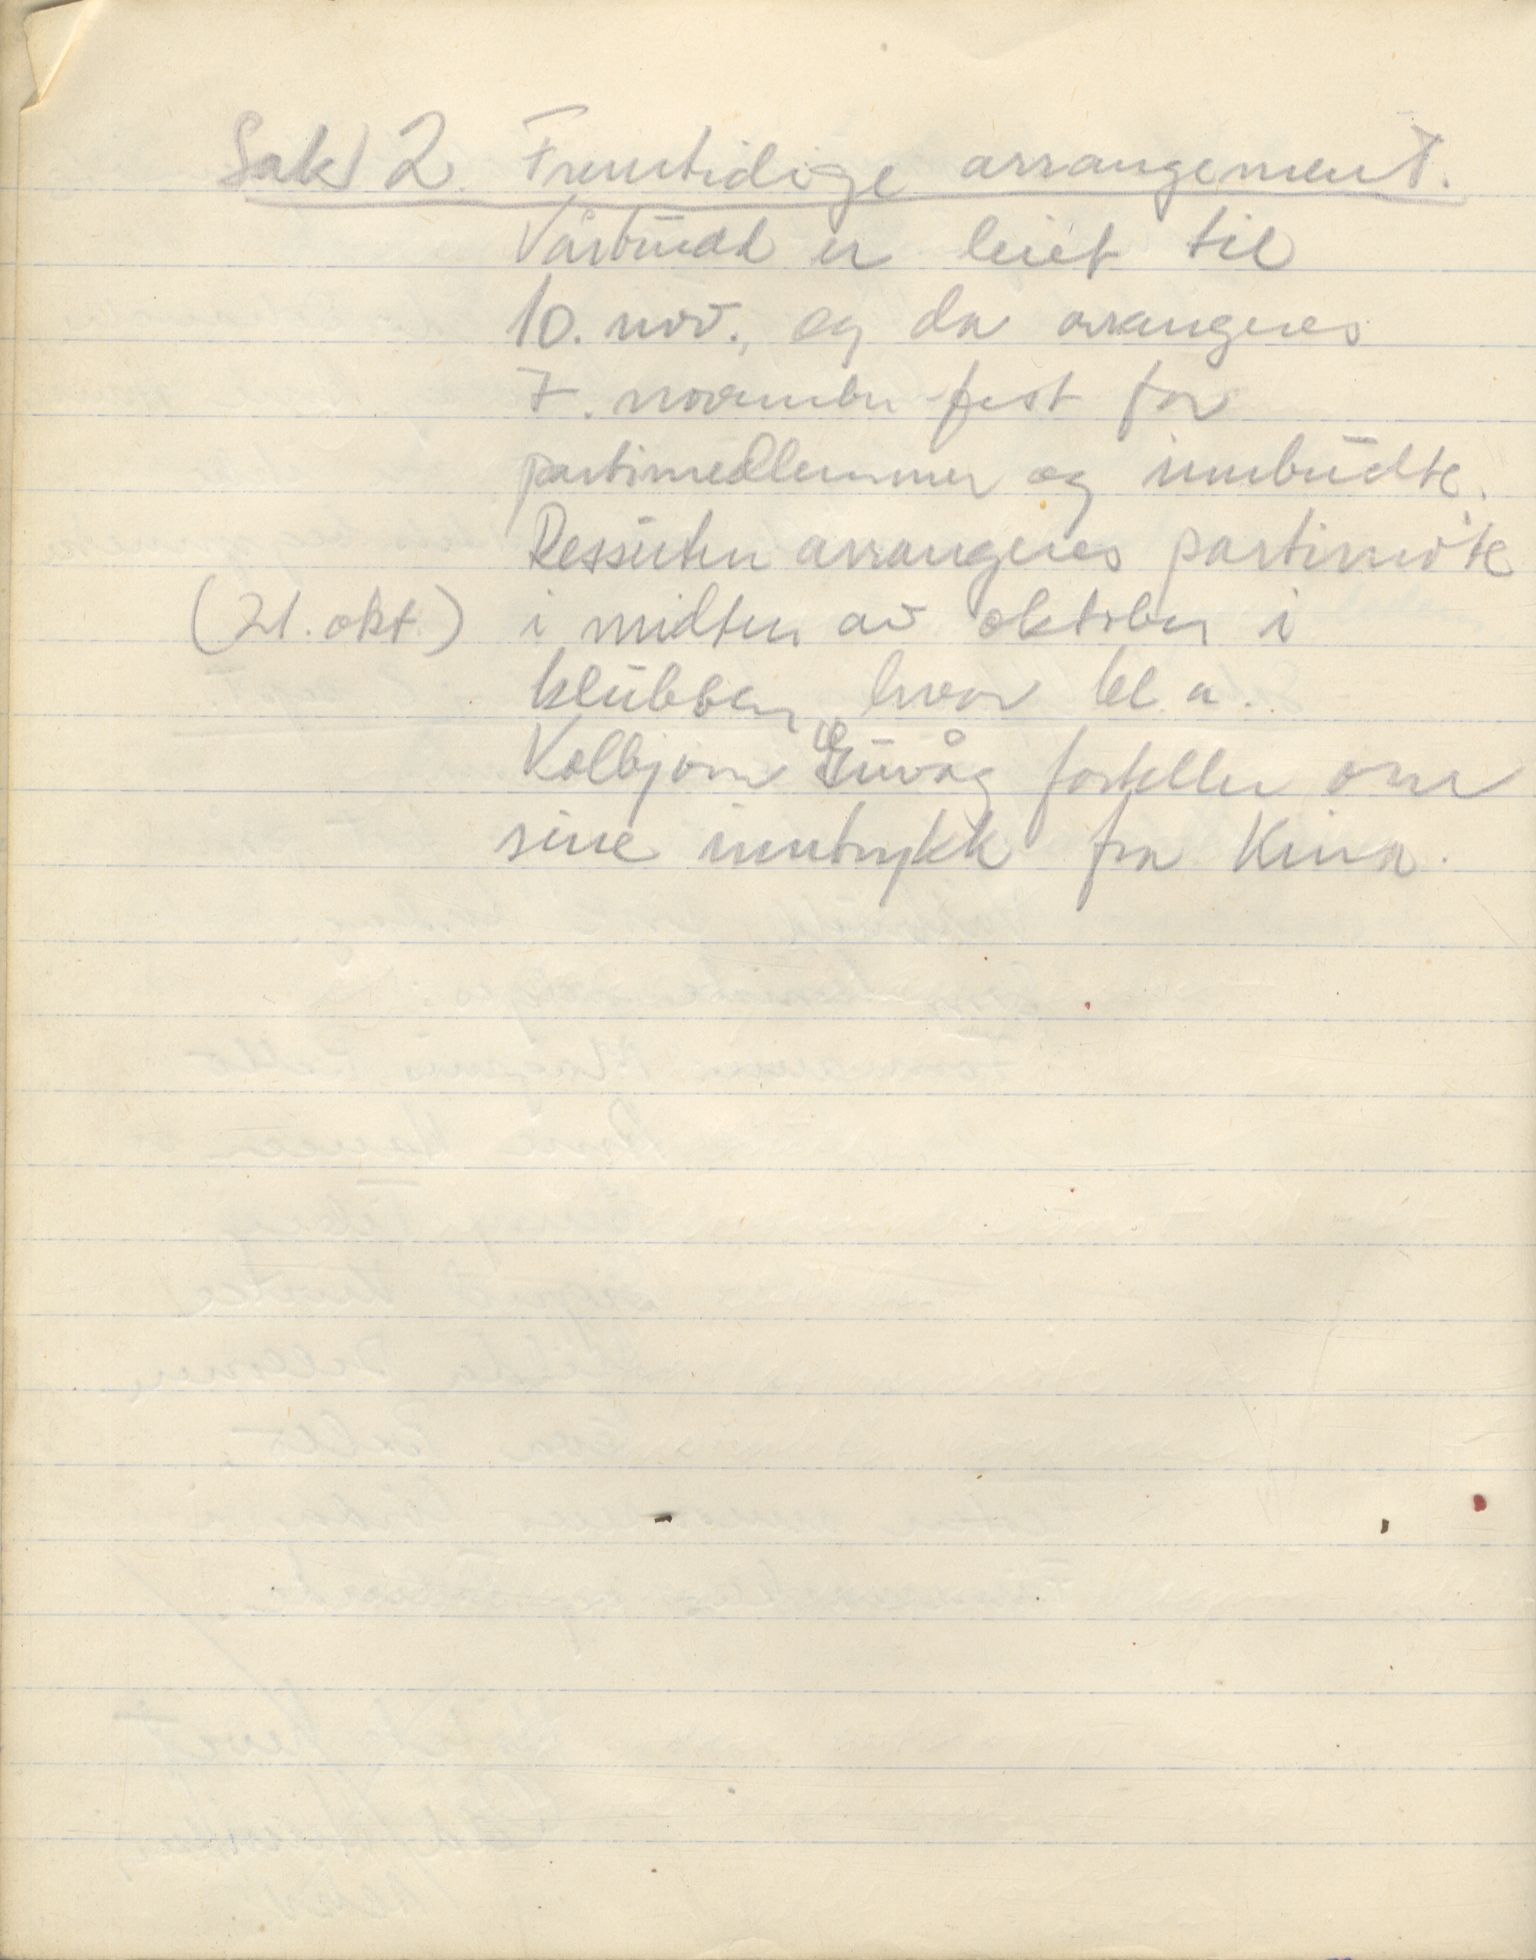 Sak 2. Fremtidige arrangement.
Vårbudd er leiet til
10. nov., og da arrangeres
7. november-fest for
partimedlemmer og innbudte.
Dessuten arrangeres partimøte
(21. okt.) i midten av oktober i
klubben, hvor bl.a.
Kolbjørn forteller om
sine inntrykk fra Kina.